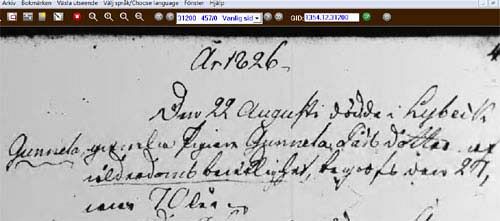 Arkiv Bokmärken Växla utseende Välj språk/Choose language Fönster Hjälp
31200 457/0 Vanlig sid GID: 1354.12.31200
År 1826
Den 22 Augusti dödde i Lybeck
Gunnela, gamla Pigan Gunnela Pårs Dotter af
ålderdoms bräcklighet, begrofs den 27,
70 år